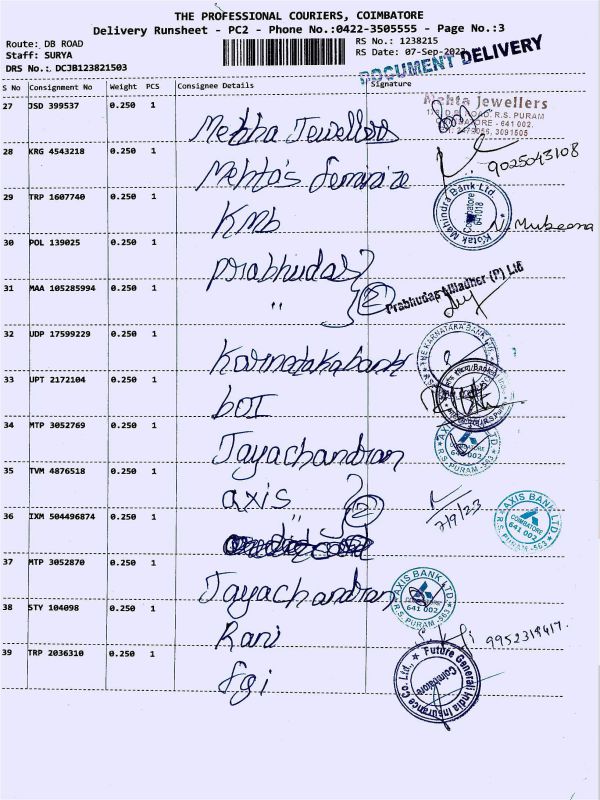 THE PROFESSIONAL COURIERS, COIMBATORE
Delivery Runsheet - PC2 - Phone No.:0422-3505555 - Page No.:3
Route: DB ROAD RS No.: 1238215
Staff: SURYA RS Date: 07-Sep-2023
DRS No.: DCJB123821503
DOCUMENT DELIVERY
S No Consignment No Weight PCS Consignee Details Signature
27 JSD 399537 0.250 1 Mehha Jewellers
Mehta Jewellers
R.S. PURAM
COIMBATORE - 641 002.
28 KRG 4543218 0.250 1 Mehta's feminize
9025043108
29 TRP 1607740 0.250 1 KMb
Kotak Mahindra Bank Ltd.
Coimbatore
641018
N. Mubeena
30 POL 139025 0.250 1 prabhudas
31 MAA 105285994 0.250 1 " 2
Prabhudas Lilladher (P) Ltd
32 UDP 17599229 0.250 1 Karnataka bank
THE KARNATAKA BANK
33 UPT 2172104 0.250 1 bOI
34 MTP 3052769 0.250 1 Jayachandran
AXIS BANK LTD.
641 002
R.S. PURAM-563
35 TVM 4876518 0.250 1 axis
7/9/23
36 IXM 504496874 0.250 1 " 2
AXIS BANK LTD
COIMBATORE
641 002
R.S. PURAM-563
37 MTP 3052870 0.250 1 Jayachandran
AXIS BANK LTD.
641 002
R.S. PURAM-563
38 STY 104098 0.250 1 Rani
39 TRP 2036310 0.250 1 fgi
Future Generali India Insurance Co. Ltd.,
Coimbatore